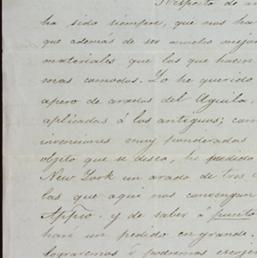 Respecto de
ha sido siempre, que nos ha
que además de ser mucho mejor
materiales que los que hacen
mas comodos. Lo he querido
apero de arados del Aguila,
aplicadas á los antiguos; com
inversiones muy ponderadas
objeto que se desea, he pedido
New York un arado de tres
las que aqui nos convengan
Appio. y de saber á punto
hará un pedido en grande.
lograremos ó podremos